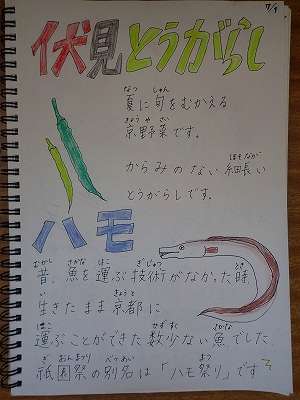 7/9
伏見とうがらし
夏に旬をむかえる
京野菜です。
からみのない細長い
とうがらしです。
ハモ
昔、魚を運ぶ技術がなかった時、
生きたまま京都に
運ぶことができた数少ない魚でした。
祇園祭の別名は「ハモ祭り」です